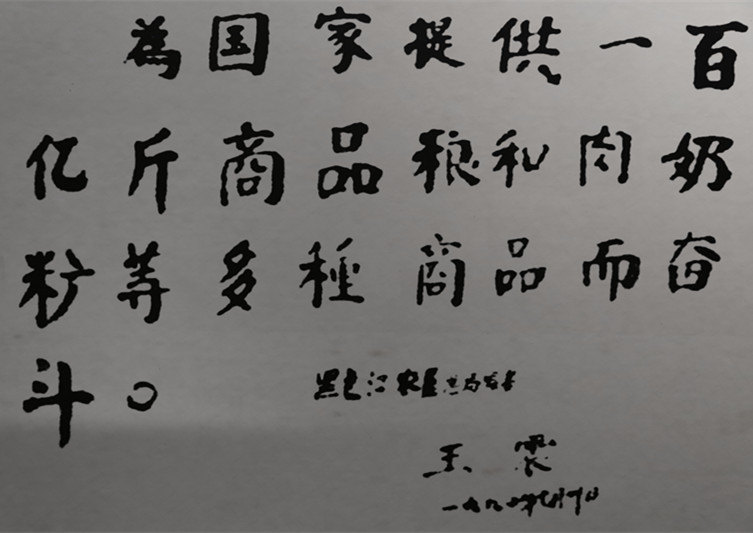 為国家提供一百
亿斤商品粮和肉奶
粉等多種商品而奋
斗。
黑龙江农垦
王震
一九八